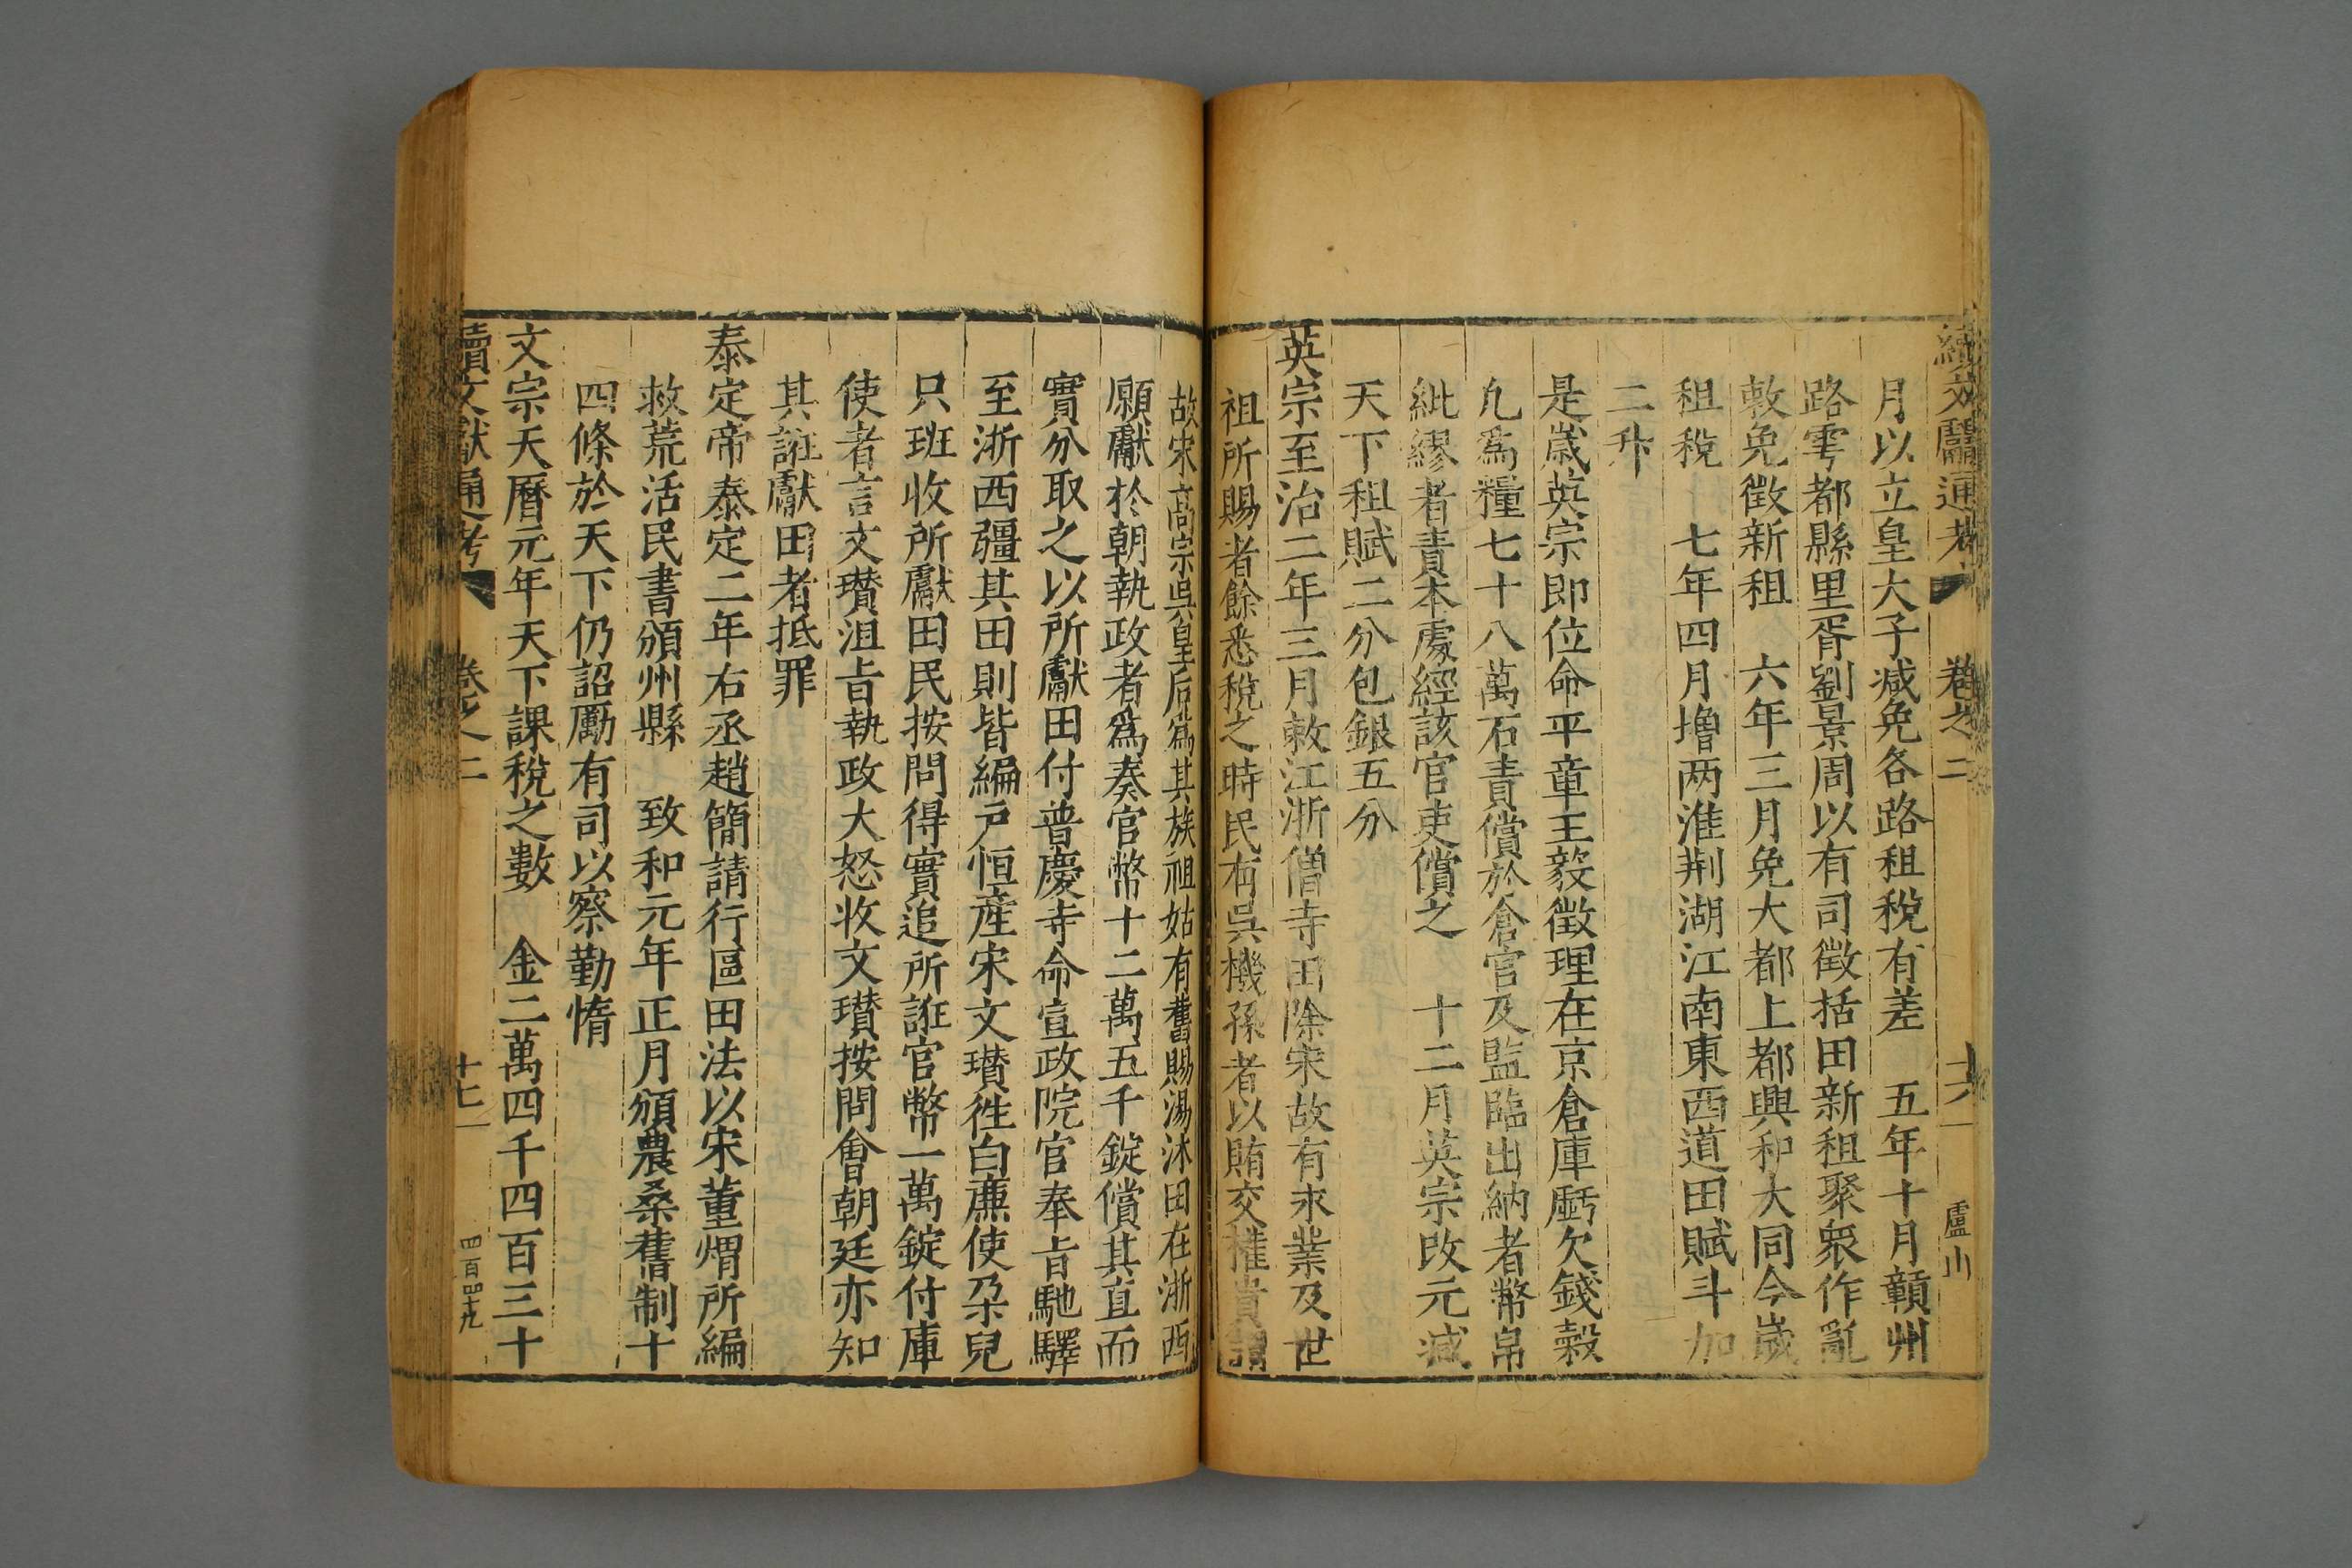 續文獻通考 卷之二 十六 盧山
月以立皇太子減免各路租稅有差 五年十月贛州
路雩都縣里胥劉景周以有司徵括田新租聚衆作亂
敕免徵新租 六年三月免大都上都興和大同今歲
租稅 七年四月增两淮荆湖江南東西道田賦斗加
二升
是歲英宗即位命平章王毅徵理在京倉庫虧欠錢穀
凡爲糧七十八萬石責償於倉官及監臨出納者幣帛
紕繆者責本處經該官吏償之 十二月英宗改元減
天下租賦二分包銀五分
英宗至治二年三月敕江浙僧寺田除宋故有永業及世
祖所賜者餘悉稅之時民有吳機孫者以賄交權貴謂
故宋高宗吳皇后爲其族祖姑有舊賜湯沐田在浙西
願獻於朝執政者爲奏官幣十二萬五千錠償其直而
實分取之以所獻田付普慶寺命宣政院官奉旨馳驛
至浙西疆其田則皆編戸恒產宋文瓚徃白亷使朶兒
只班收所獻田民按問得實追所誑官幣一萬錠付庫
使者言文瓚沮旨執政大怒收文瓚按問會朝廷亦知
其誑獻田者抵罪
泰定帝泰定二年右丞趙簡請行區田法以宋董煟所編
救荒活民書頒州縣 致和元年正月頒農桑舊制十
四條於天下仍詔勵有司以察勤惰
文宗天曆元年天下課稅之數 金二萬四千四百三十
續文獻通考 卷之二 十七 四百四十九